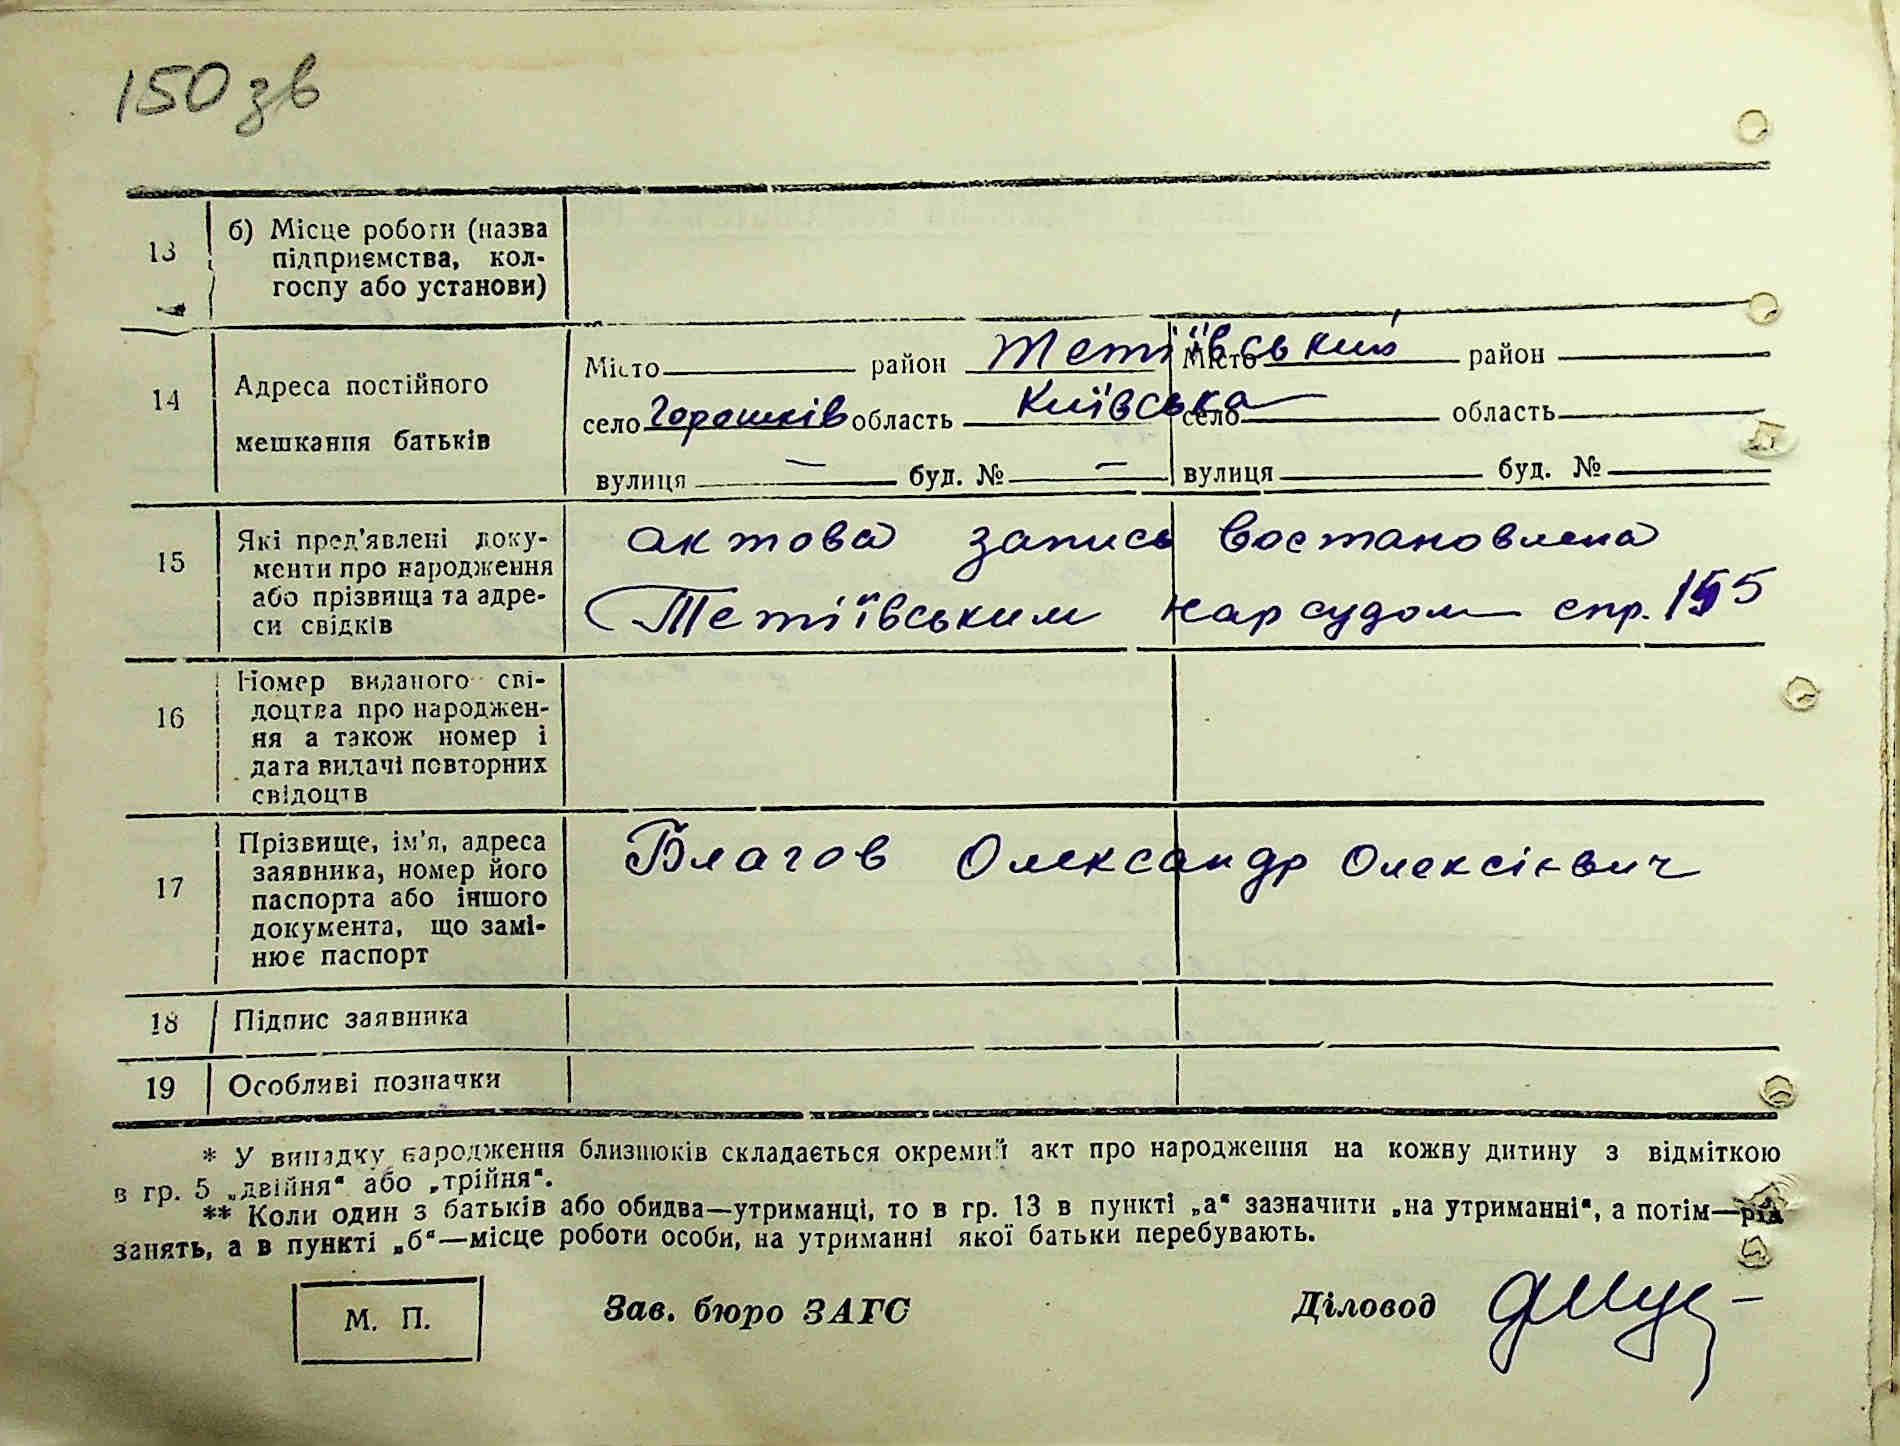 150 зв
13 б) Місце роботи (назва
підприємства, кол-
госпу або установи)
14 Адреса постійного
мешкання батьків
Місто район Тетіївський Місто район
село Горошків область Київська село область
вулиця — буд. № — вулиця буд. №
15 Які пред'явлені доку-
менти про народження
або прізвища та адре-
си свідків
актова запись востановлена
Тетіївським нарсудом спр. 155
16 Номер виданого сві-
доцтва про народжен-
ня а також номер і
дата видачі повторних
свідоцтв
17 Прізвище, ім'я, адреса
заявника, номер його
паспорта або іншого
документа, що замі-
нює паспорт
Благов Олександр Олексієвич
18 Підпис заявника
19 Особливі позначки
* У випадку народження близнюків складається окремий акт про народження на кожну дитину з відміткою
в гр. 5 „двійня“ або „трійня“.
** Коли один з батьків або обидва—утриманці, то в гр. 13 в пункті „а“ зазначити „на утриманні“, а потім—рід
занять, а в пункті „б“—місце роботи особи, на утриманні якої батьки перебувають.
М. П. Зав. бюро ЗАГС Діловод